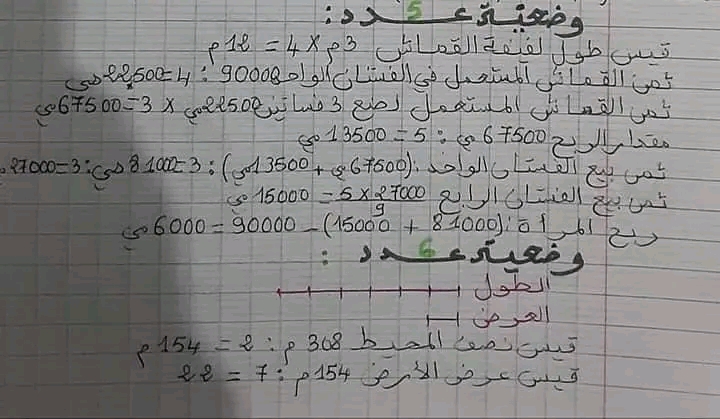 وضعية عدد 5:
قيس طول لفيفة القماش 3م × 4 = 12م
ثمن القماش المستعمل في الفستان الواحد 90000 : 4 = 22500مي
ثمن القماش المستعمل لصنع 3 فساتين 22500مي × 3 = 67500مي
مقدار الربح 67500مي : 5 = 13500مي
ثمن بيع الفستان الواحد: (67500مي + 13500مي) : 3 = 81000مي : 3 = 27000
ثمن بيع الفستان الرابع 27000 × 5 / 9 = 15000مي
ربح المرأة: (81000 + 15000) - 90000 = 6000مي
وضعية عدد 6:
الطول
العرض
قيس نصف المحيط 308م : 2 = 154م
قيس عرض الأرض 154م : 7 = 22